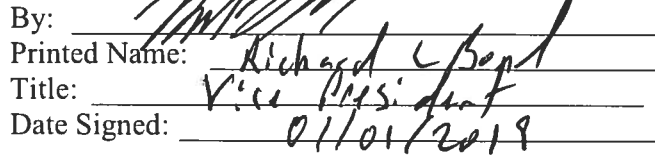 By:
Printed Name: Richard L
Title: Vice President
Date Signed: 01/01/2019